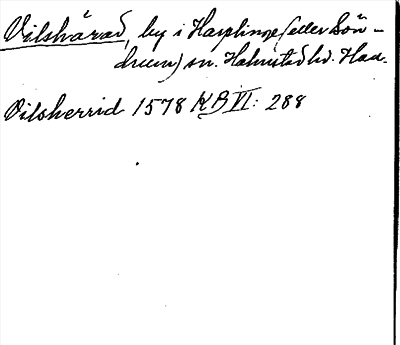 Vilshärad, by i Harplinge (eller Sön-
drum) sn. Halmstad hd. Hall.
Vilsherrid 1578 KB VI: 288